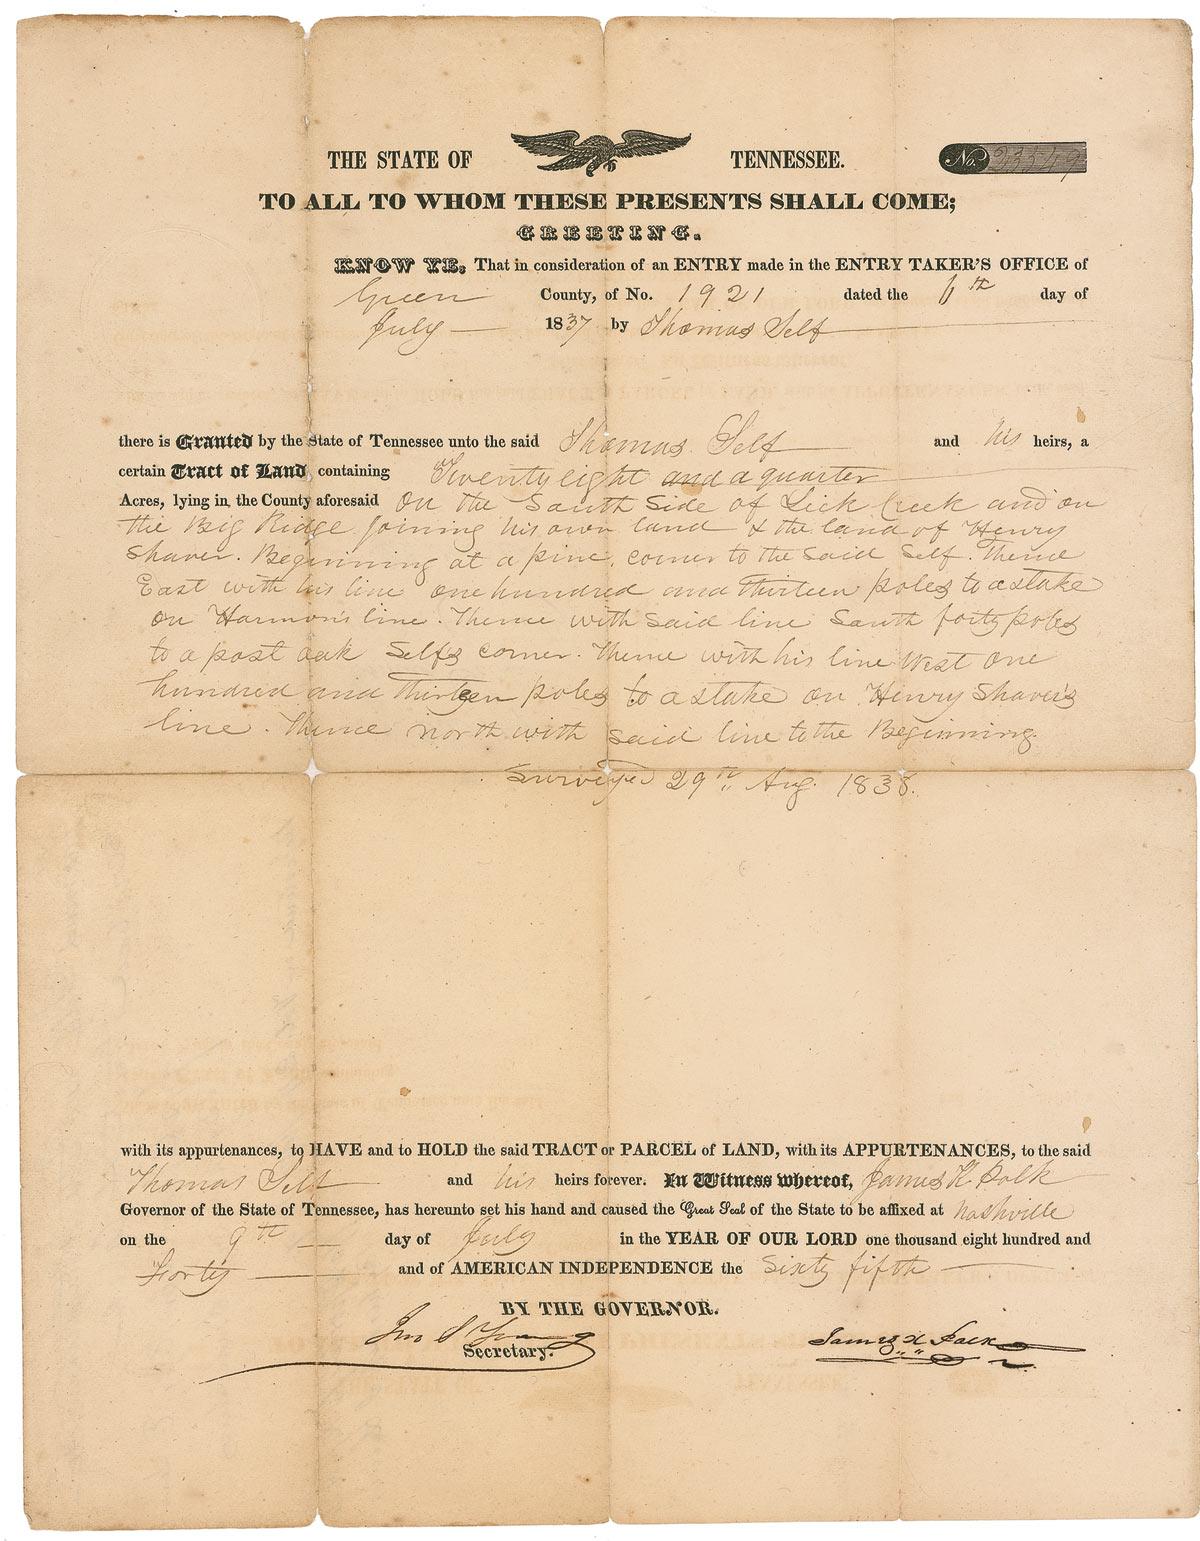 THE STATE OF TENNESSEE. No. 23549
TO ALL TO WHOM THESE PRESENTS SHALL COME;
GREETING.
KNOW YE, That in consideration of an ENTRY made in the ENTRY TAKER'S OFFICE of
Green County, of No. 1921 dated the 6th day of
July 1837 by Thomas Self
there is Granted by the State of Tennessee unto the said Thomas Self and his heirs, a
certain Tract of Land containing Twenty eight and a quarter
Acres, lying in the County aforesaid On the South Side of Lick Creek and on
the Big Ridge joining his own land & the land of Henry
Shaver. Beginning at a pine, corner to the said Self. Thence
East with his line one hundred and thirteen poles to a stake
on Harmon's line. Thence with said line South forty poles
to a post oak Selfs corner. Thence with his line West one
hundred and thirteen poles to a stake on Henry Shaver's
line. Thence north with said line to the Beginning.
Surveyed 29th Aug. 1838.
with its appurtenances, to HAVE and to HOLD the said TRACT or PARCEL of LAND, with its APPURTENANCES, to the said
Thomas Self and his heirs forever. In Witness whereof, James K Polk
Governor of the State of Tennessee, has hereunto set his hand and caused the Great Seal of the State to be affixed at Nashville
on the 9th day of July in the YEAR OF OUR LORD one thousand eight hundred and
Forty and of AMERICAN INDEPENDENCE the Sixty fifth
BY THE GOVERNOR.
Jno S Young James K Polk
Secretary.